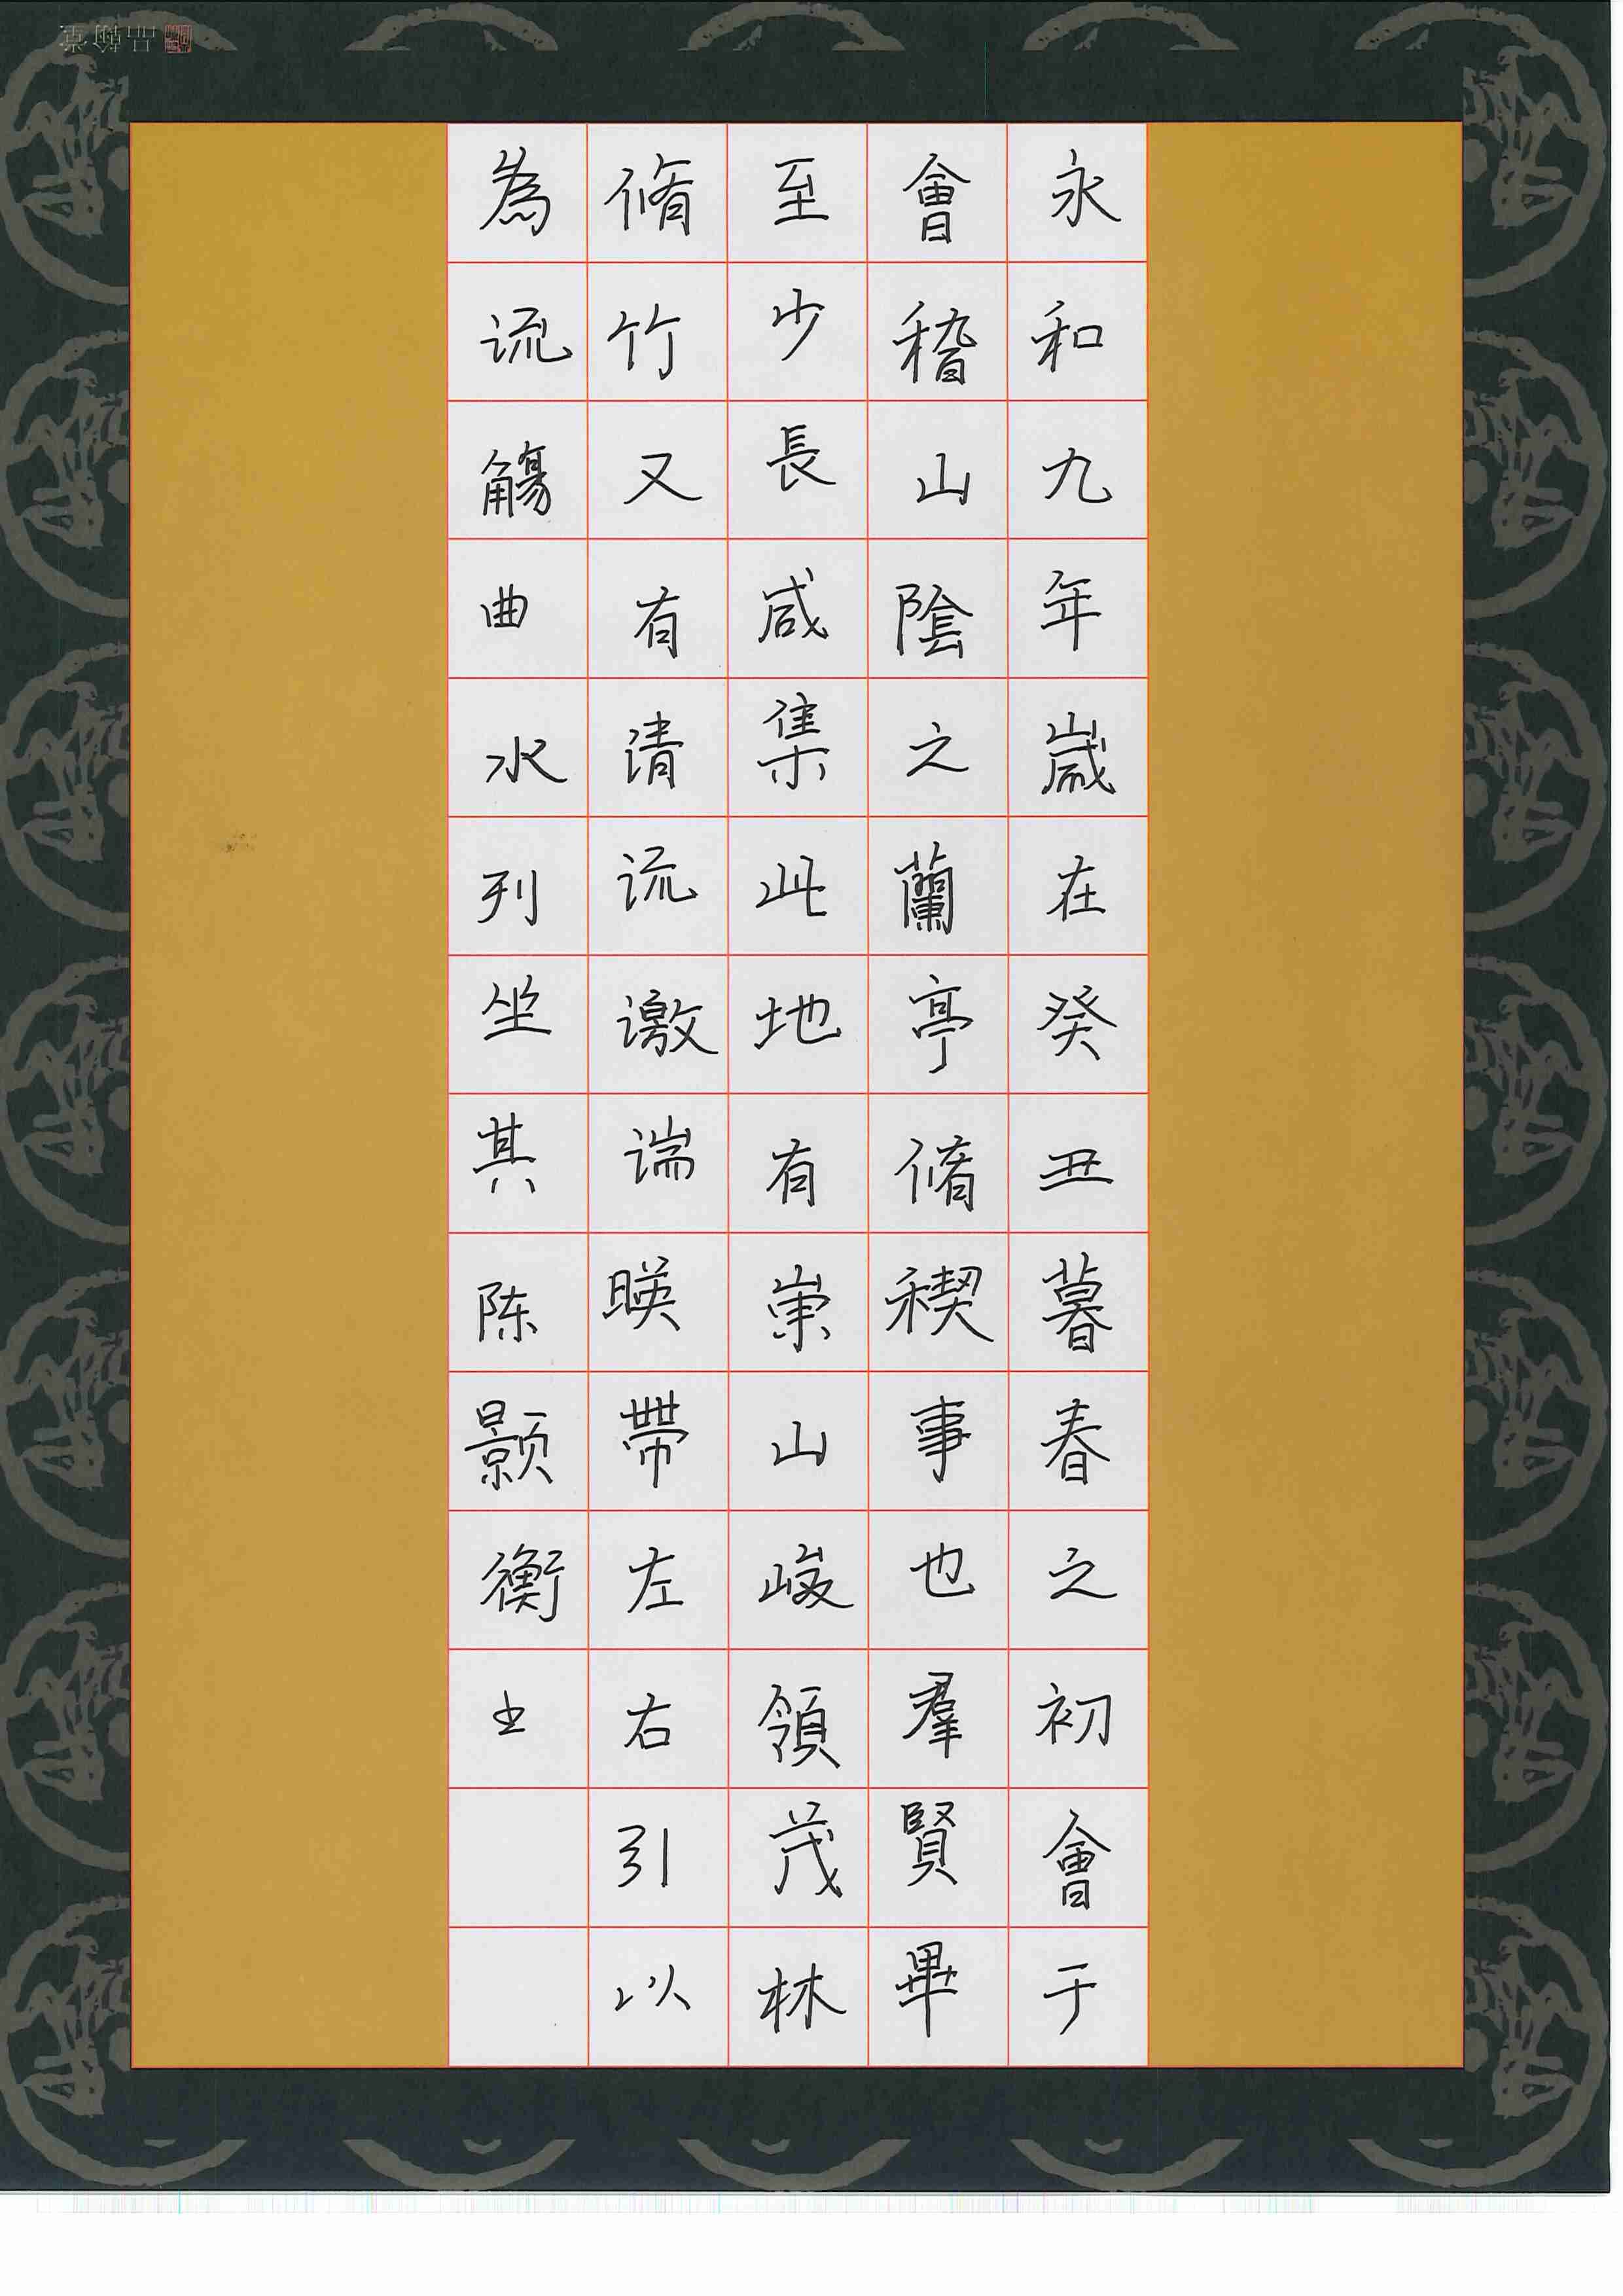 永和九年嵗在癸丑暮春之初會于
會稽山陰之蘭亭脩稧事也羣賢畢
至少長咸集此地有崇山峻領茂林
脩竹又有清流激湍暎帶左右引以
為流觴曲水列坐其
陈颢衡书
品翰堂